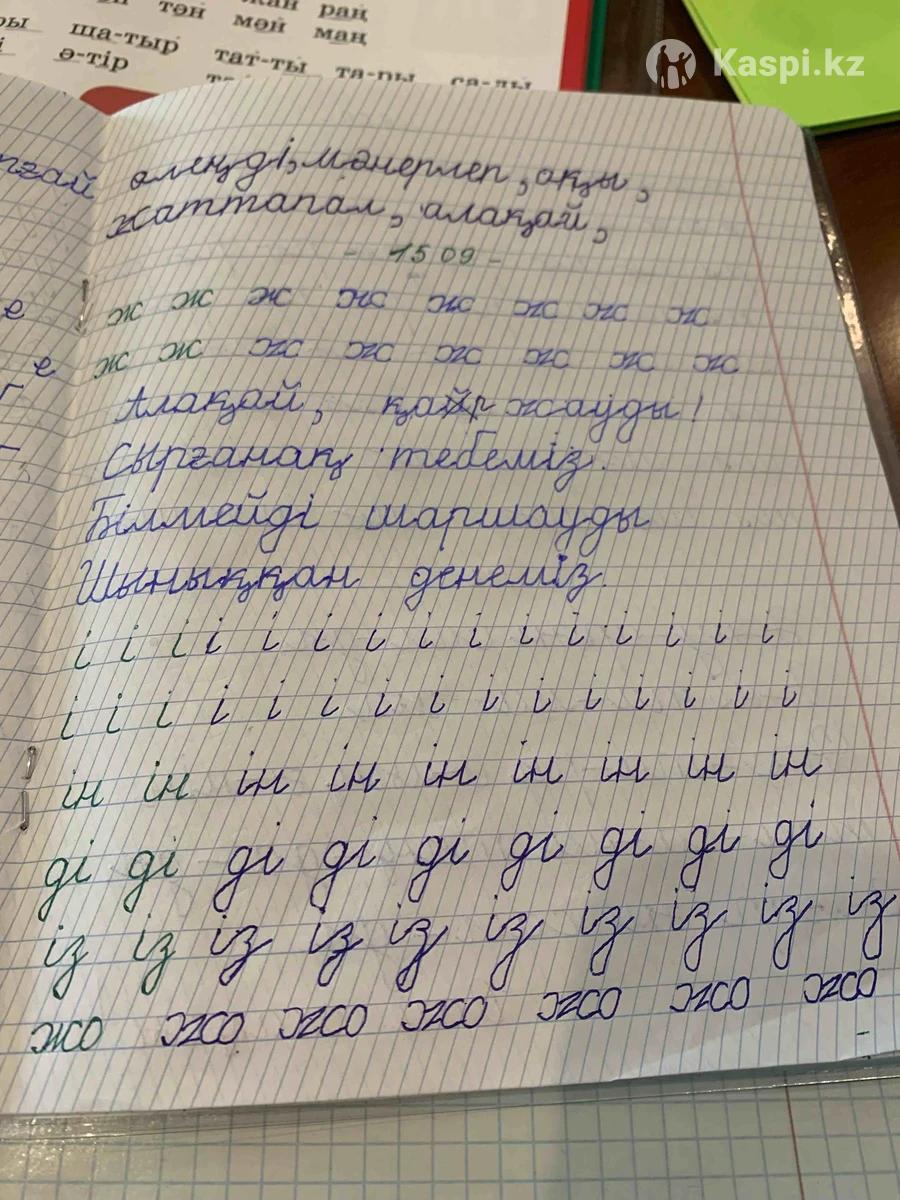 тән мән жан раң
маң
ры ша-тыр тат-ты та-ры са-лы
ә-тір
Kaspi.kz
пғай
өлеңді, мәнерлеп, оқы,
жаттапал, алақай,
- 15 09 -
ж ж ж ж ж ж ж ж
е
ж ж ж ж ж ж ж ж
е
Алақай, қар жауды!
Сырғанақ тебеміз.
Білмейді шаршауды
Шыныққан денеміз.
і і і і і і і і і і і і і і і
і і і і і і і і і і і і і і і
ін ін ін ін ін ін ін ін ін
ді ді ді ді ді ді ді ді ді
із із із із із із із із із із
жо жо жо жо жо жо жо